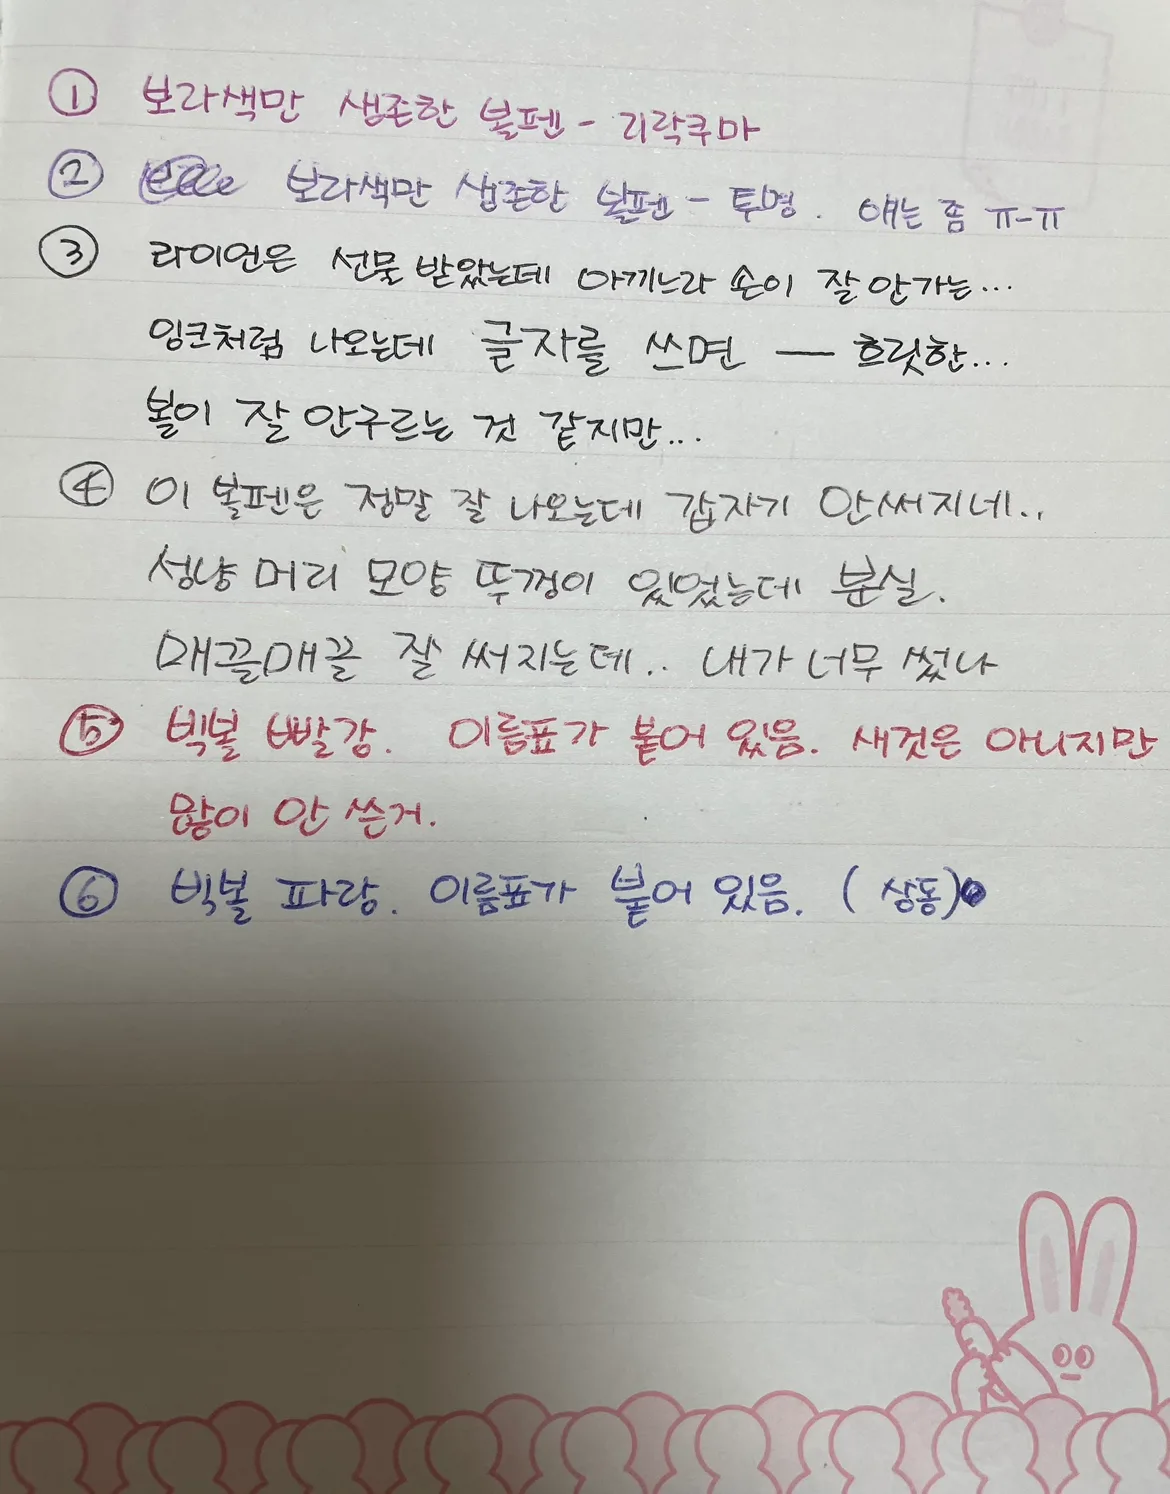 ① 보라색만 생존한 볼펜 - 리락쿠마
② 보라색만 생존한 볼펜 - 투명. 얘는 좀 ㅠ-ㅠ
③ 라이언은 선물 받았는데 아끼느라 손이 잘 안가는...
잉크처럼 나오는데 글자를 쓰면 — 흐릿한...
볼이 잘 안구르는 것 같지만...
④ 이 볼펜은 정말 잘 나오는데 갑자기 안써지네..
성냥 머리 모양 뚜껑이 있었는데 분실.
매끌매끌 잘 써지는데.. 내가 너무 썼나
⑤ 빅볼 빨강. 이름표가 붙어 있음. 새것은 아니지만
많이 안 쓴거.
⑥ 빅볼 파랑. 이름표가 붙어 있음. (상동)